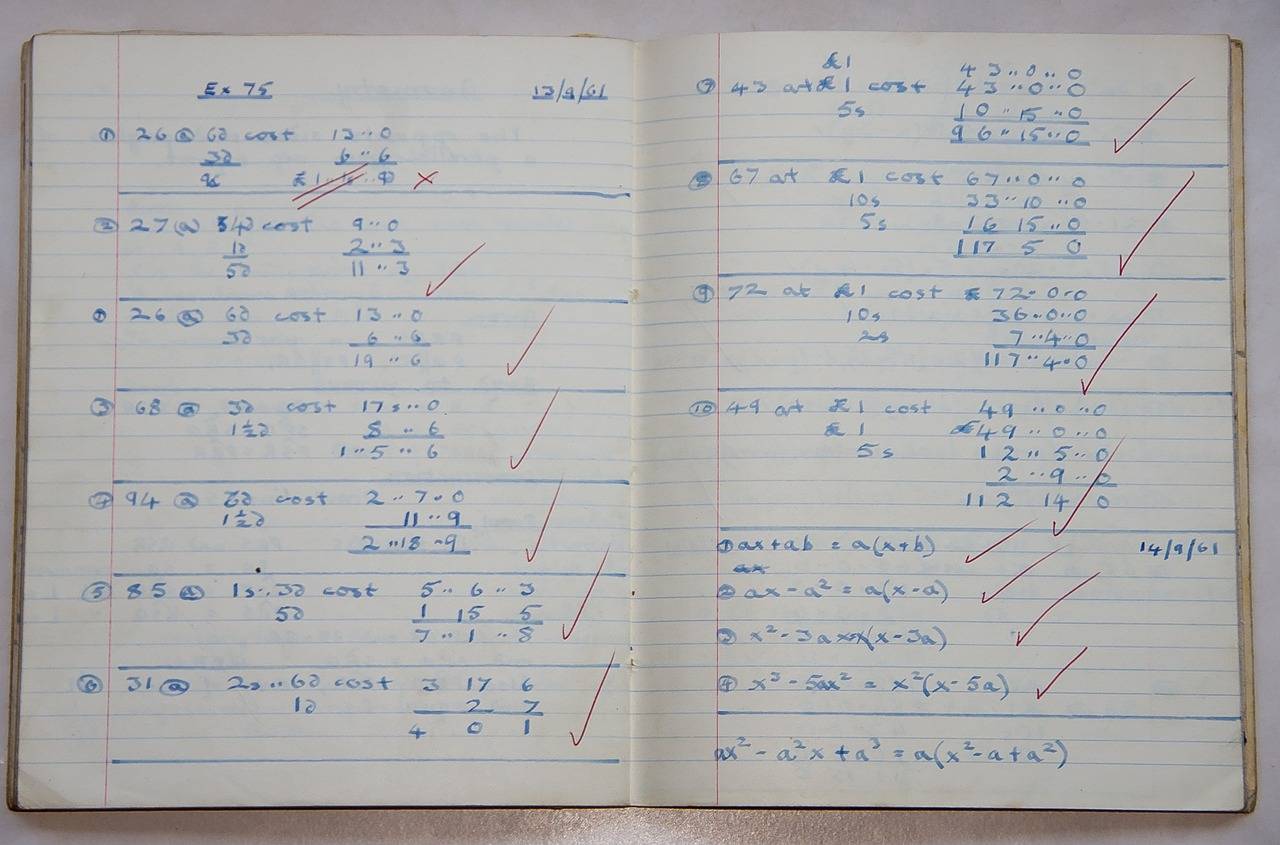 Ex 75 13/9/61
① 26 @ 6d cost 13··0
3d 6··6
9d £1··
② 27 @ 4d cost 9··0
1d 2··3
5d 11··3
① 26 @ 6d cost 13··0
3d 6··6
19··6
③ 68 @ 3d cost 17s··0
1½d 8··6
1··5··6
④ 94 @ cost 2··7··0
1½d 11··9
2··18··9
⑤ 85 @ 1s··3d cost 5··6··3
5d 1 15 5
7··1··8
⑥ 31 @ 2s··6d cost 3 17 6
1d 2 7
4 0 1
£1 43··0··0
⑦ 43 at £1 cost 43··0··0
5s 10··15··0
96··15··0
⑧ 67 at £1 cost 67··0··0
10s 33··10··0
5s 16 15··0
117 5 0
⑨ 72 at £1 cost £72·0·0
10s 36··0··0
2s 7··4··0
117··4·0
⑩ 49 at £1 cost 49··0··0
£1 £49··0··0
5s 12··5··0
2··9··0
112 14 0
① ax+ab = a(x+b) 14/9/61
ax
② ax-a² = a(x-a)
③ x²-3ax = x(x-3a)
④ x³-5ax² = x²(x-5a)
ax²-a²x+a³ = a(x²-a+a²)